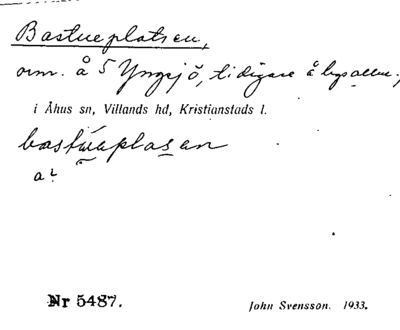 Bastueplatsen,
om. å 5 Yngsjö, tidigare å
i Åhus sn, Villands hd, Kristianstads l.
bastuaplasan
a²
Nr 5487.
John Svensson. 1933.